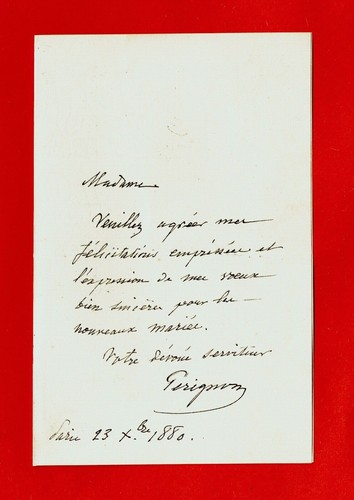 Madame
Veuillez agréer mes
félicitations empréssées et
l'expression de mes voeux
bien sincères pour les
nouveaux mariés.
Votre dévoué serviteur
Perignon
Paris 23 Xbre 1880.